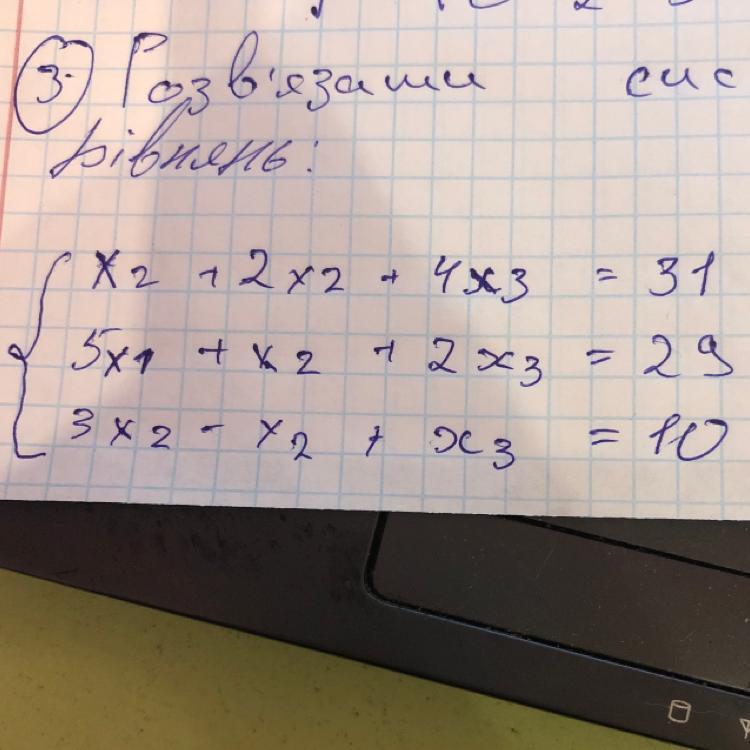 3. Розв'язати сис
рівнянь:
x2 + 2x2 + 4x3 = 31
5x1 + x2 + 2x3 = 29
3x2 - x2 + x3 = 10